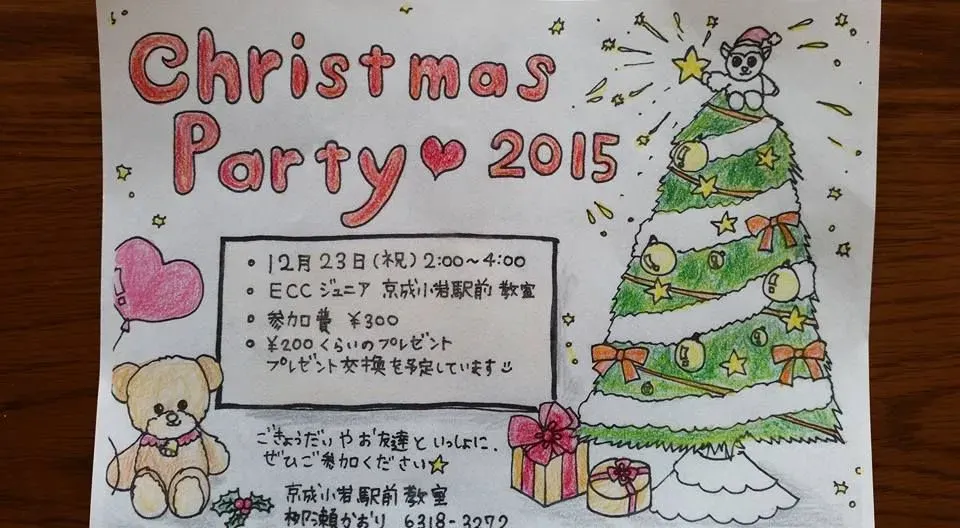 Christmas
Party♥2015
• 12月23日(祝) 2:00～4:00
• ECCジュニア 京成小岩駅前 教室
• 参加費 ¥300
• ¥200くらいのプレゼント
プレゼント交換を予定しています
ごきょうだいやお友達といっしょに、
ぜひご参加ください☆
京成小岩駅前教室
柳瀬かおり 6318-3272